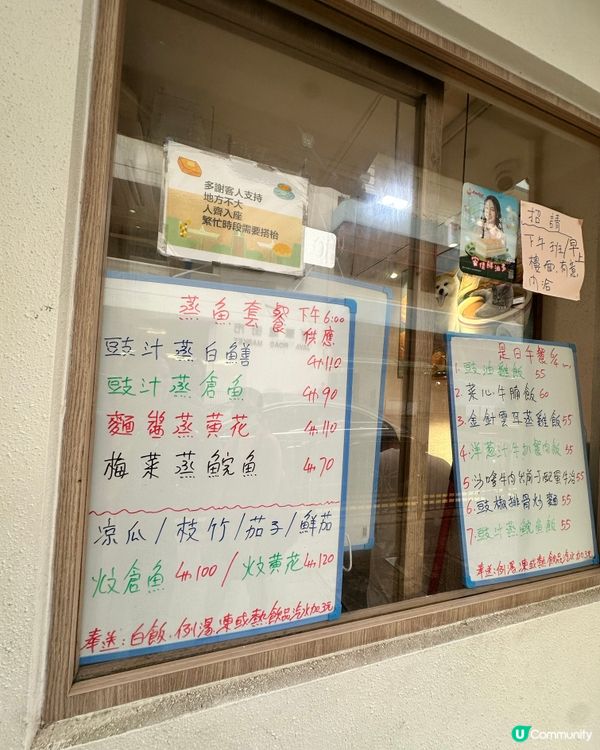 多謝客人支持
地方不大
人齊入座
繁忙時段需要搭枱
招請
下午班/早上
樓面.有意
內洽
蒸魚套餐 下午6:00
供應
豉汁蒸白鱔 $110
豉汁蒸倉魚 $90
麵醬蒸黃花 $110
梅菜蒸鯇魚 $70
凉瓜/枝竹/茄子/鮮茄
炆倉魚 $100/炆黃花 $120
奉送:白飯.例湯凍或熱飲品汽水加3元
是日午餐
1.豉油雞飯 55
2.菜心牛腩飯 60
3.金針雲耳蒸雞飯 55
4.洋葱汁牛扒飯 55
5.沙嗲牛肉 55
6.豉椒排骨炒麵 55
7.豉汁蒸鯇魚飯 55
奉送:例湯凍或熱飲品汽水加3元
U Community